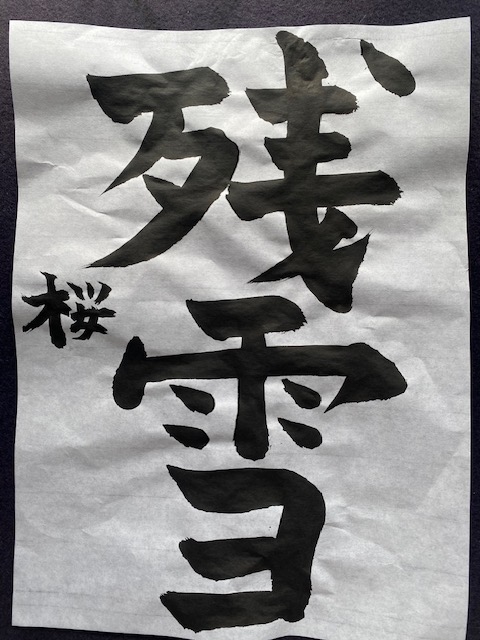 残雪
桜